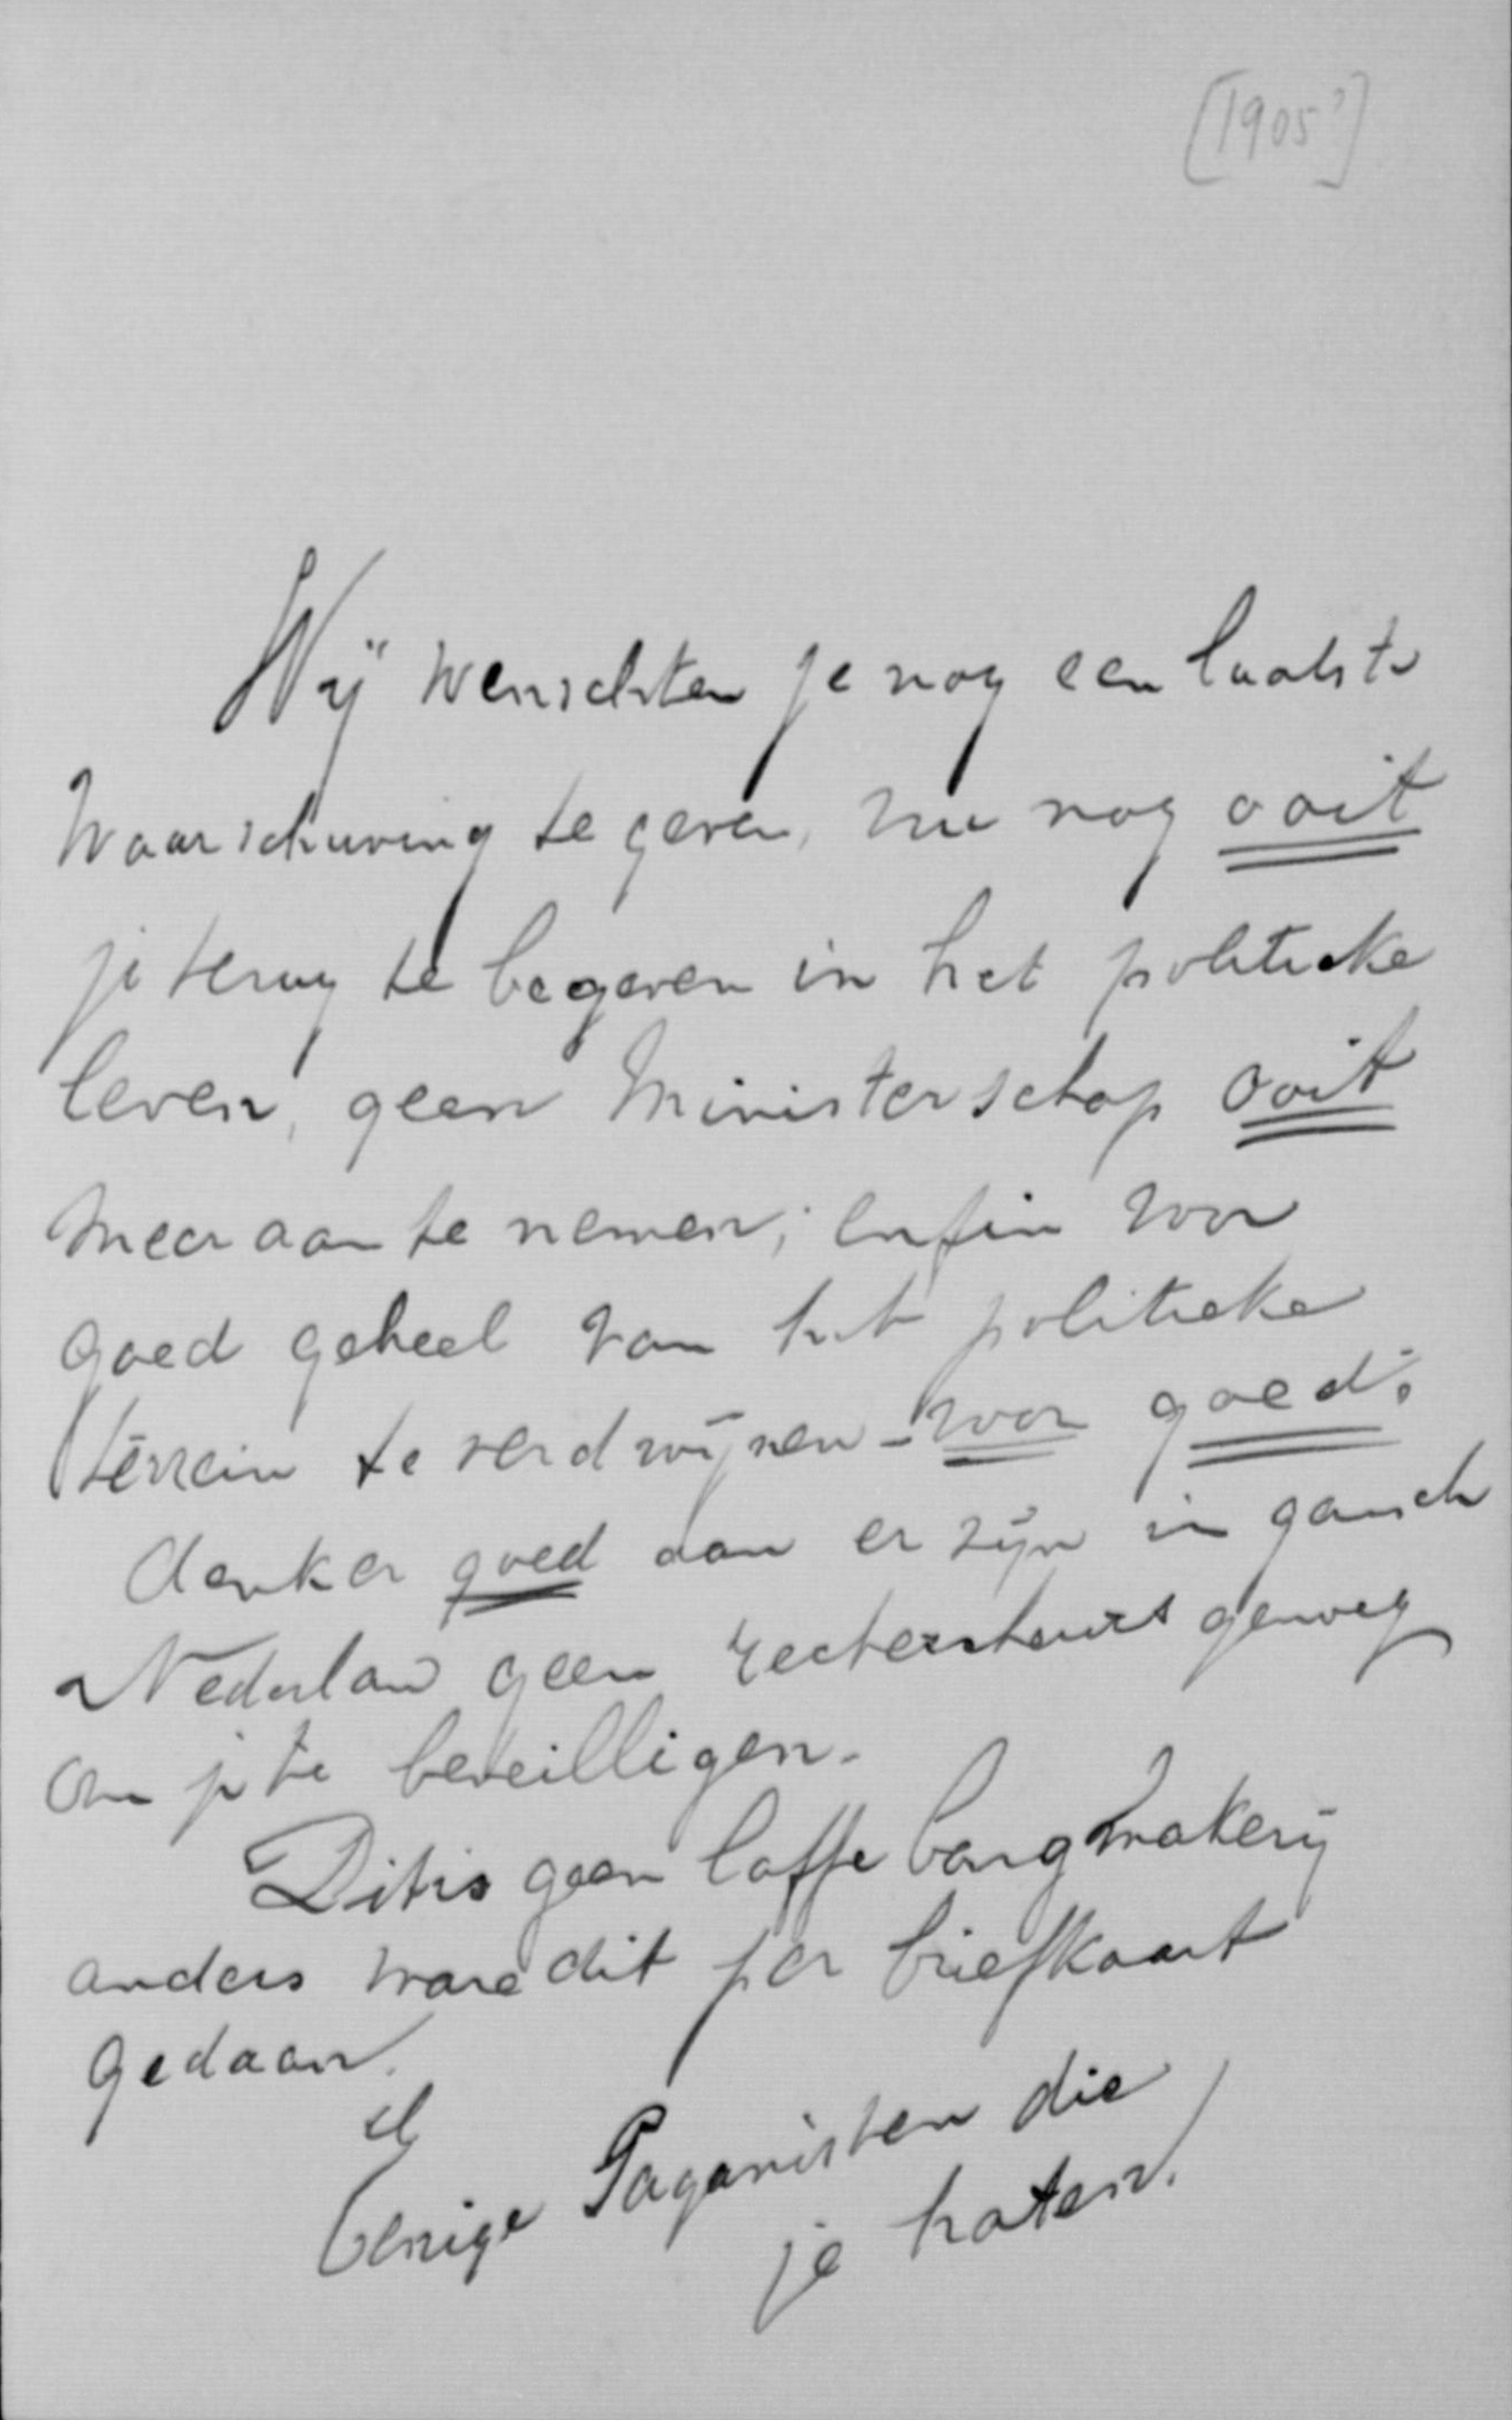 [1905?]
Wij wenschten je nog een laatste
waarschuwing te geven, nu nog ooit
je terug te begeven in het politieke
leven, geen Ministerschap ooit
meer aan te nemen; enfin voor
goed geheel van het politieke
terrein te verdwijnen - voor goed.
denk er goed aan er zijn in gansch
Nederland geen rechercheurs genoeg
om je te beveilligen.
Dit is geen laffe bangmakerij
anders ware dit per briefkaart
gedaan.
Eenige Paganisten die
je haten!